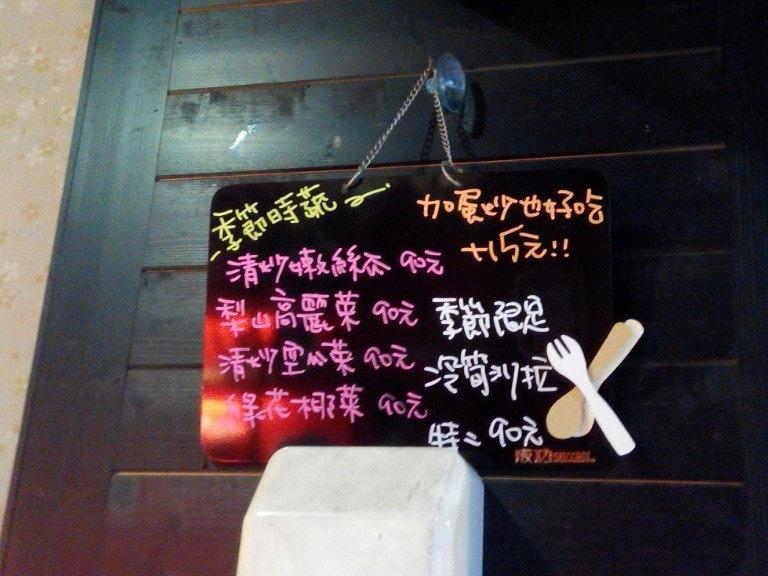 季節時蔬
加蛋炒也好吃
+15元!!
清炒嫩絲瓜 90元
梨山高麗菜 90元
清炒空心菜 90元
綠花椰菜 90元
季節限定
冷筍沙拉
特= 90元
成功 SUCCESS.